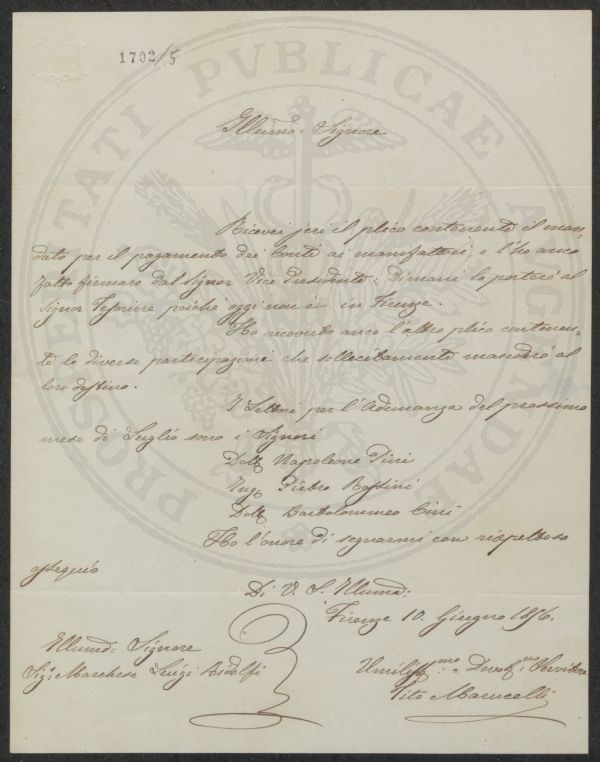 1702/5
PROSPERITATI PVBLICAE AVGENDAE
Illumo. Signore
Ricevei jeri il plico contenente il man-
dato per il pagamento dei Conti ai manifattori, e l'ho anco
fatto firmare dal Signor Vice Presidente; dimani lo porterò al
Signor Tesoriere poichè oggi non è in Firenze.
Ho ricevuto anco l'altro plico contenen-
te le diverse partecipazioni che sollecitamente manderò al
loro destino.
I Lettori per l'Adunanza del prossimo
mese di Luglio sono i Signori
Dott. Napoleone Pini
Ing. Pietro
Dott. Bartolommeo Cini
Ho l'onore di segnarmi con rispettoso
ossequio
Di V. S. Illuma:
Firenze 10. Giugno 1856.
Signore
Sigr. Marchese Luigi Ridolfi
Umiliss.mo e Devot.mo Servitore
Tito Marucelli